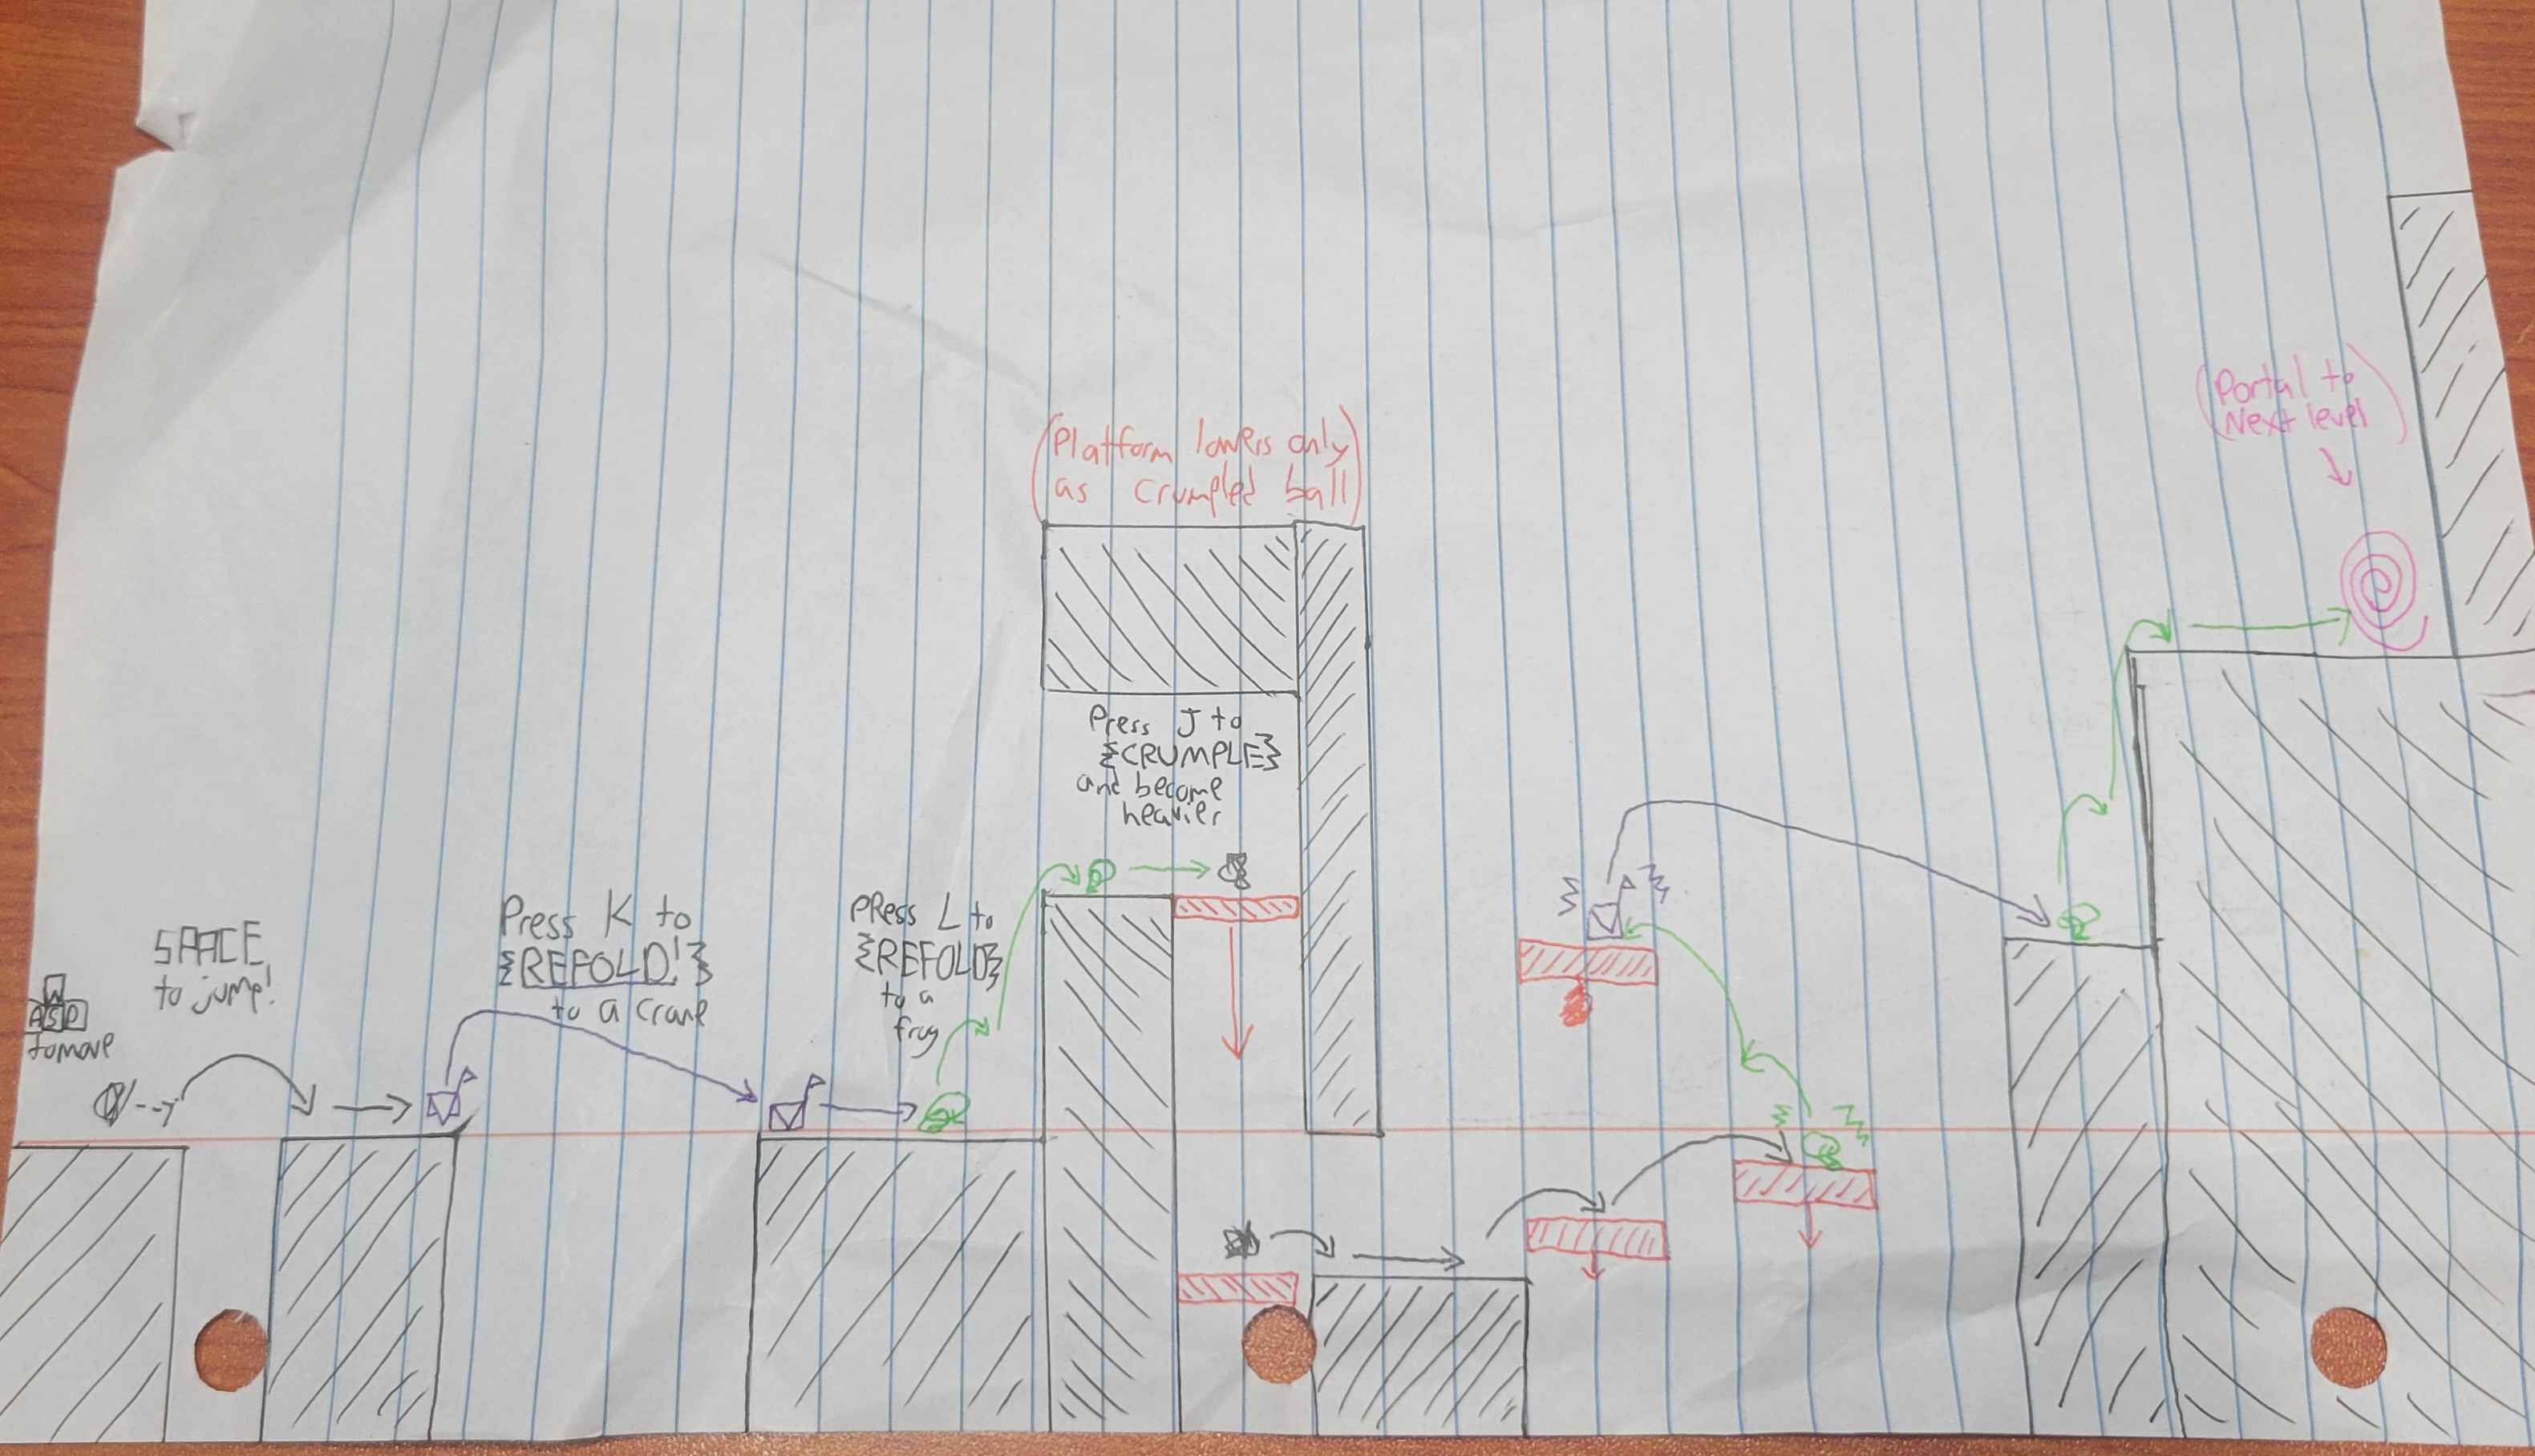 W
ASD
to move
SPACE
to jump!
Press K to
{REFOLD!}
to a crane
PRess L to
{REFOLD}
to a
frog
(Platform lowers only
as crumpled ball)
Press J to
{CRUMPLE}
and become
heavier
(Portal to
Next level)